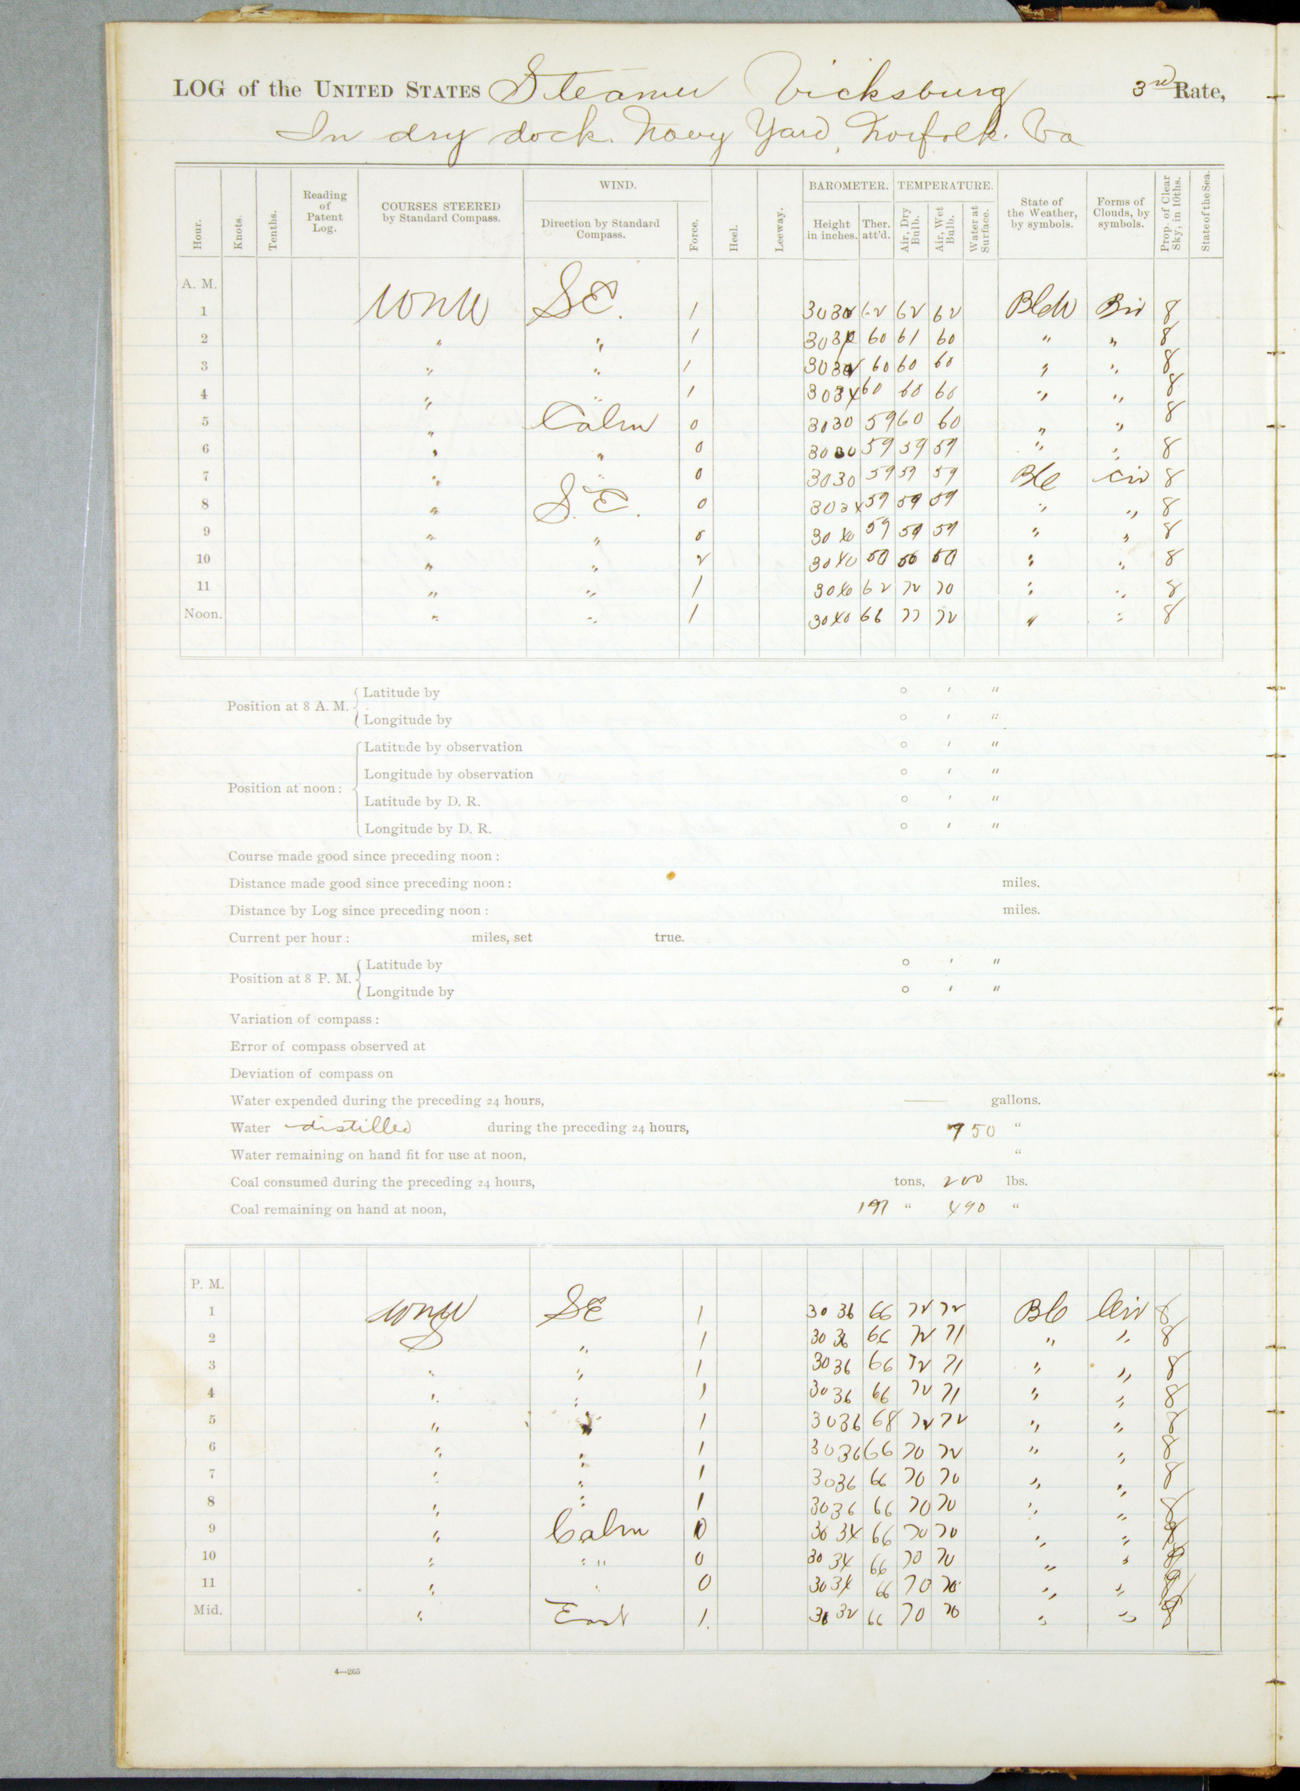 LOG of the UNITED STATES Steamer Vicksburg 3rd Rate,
In dry dock. Navy Yard, Norfolk. Va
Hour. Knots. Tenths. Reading of Patent Log. COURSES STEERED by Standard Compass. WIND. Direction by Standard Compass. Force. Heel. Leeway. BAROMETER. Height in inches. Ther. att'd. TEMPERATURE. Air, Dry Bulb. Air, Wet Bulb. Water at Surface. State of the Weather, by symbols. Forms of Clouds, by symbols. Prop. of Clear Sky, in 10ths. State of the Sea.
A. M.
1 WNW SE. 1 62 62 62 8
2 " " 1 60 61 60 " " 8
3 " " 1 60 60 60 " " 8
4 " " 1 3034 60 60 60 " " 8
5 " Calm 0 3030 59 60 60 " " 8
6 " " 0 3030 59 59 59 " " 8
7 " " 0 3030 59 59 59 Bc Cir 8
8 " S.E. 0 59 59 59 " " 8
9 " " 0 3040 59 59 59 " " 8
10 " " 2 3040 " " 8
11 " " 1 3040 62 72 70 " " 8
Noon. " " 1 3040 66 77 72 " " 8
Position at 8 A. M. Latitude by ° ′ ″
Longitude by ° ′ ″
Position at noon: Latitude by observation ° ′ ″
Longitude by observation ° ′ ″
Latitude by D. R. ° ′ ″
Longitude by D. R. ° ′ ″
Course made good since preceding noon:
Distance made good since preceding noon: miles.
Distance by Log since preceding noon: miles.
Current per hour: miles, set true.
Position at 8 P. M. Latitude by ° ′ ″
Longitude by ° ′ ″
Variation of compass:
Error of compass observed at
Deviation of compass on
Water expended during the preceding 24 hours, — gallons.
Water distilled during the preceding 24 hours, 950 "
Water remaining on hand fit for use at noon, "
Coal consumed during the preceding 24 hours, tons, 200 lbs.
Coal remaining on hand at noon, 197 " 490 "
P. M.
1 WNW SE 1 3036 66 72 72 Bc Cir 8
2 " " 1 3036 66 72 71 " " 8
3 " " 1 3036 66 72 71 " " 8
4 " " 1 3036 66 72 71 " " 8
5 " " 1 3036 68 72 72 " " 8
6 " " 1 3036 66 70 72 " " 8
7 " " 1 3036 66 70 70 " " 8
8 " " 1 3036 66 70 70 " " 8
9 " Calm 0 3034 66 70 70 " "
10 " " 0 3034 66 70 70 " "
11 " " 0 3034 66 70 70 " "
Mid. " East 1. 3032 66 70 70 " "
4—265